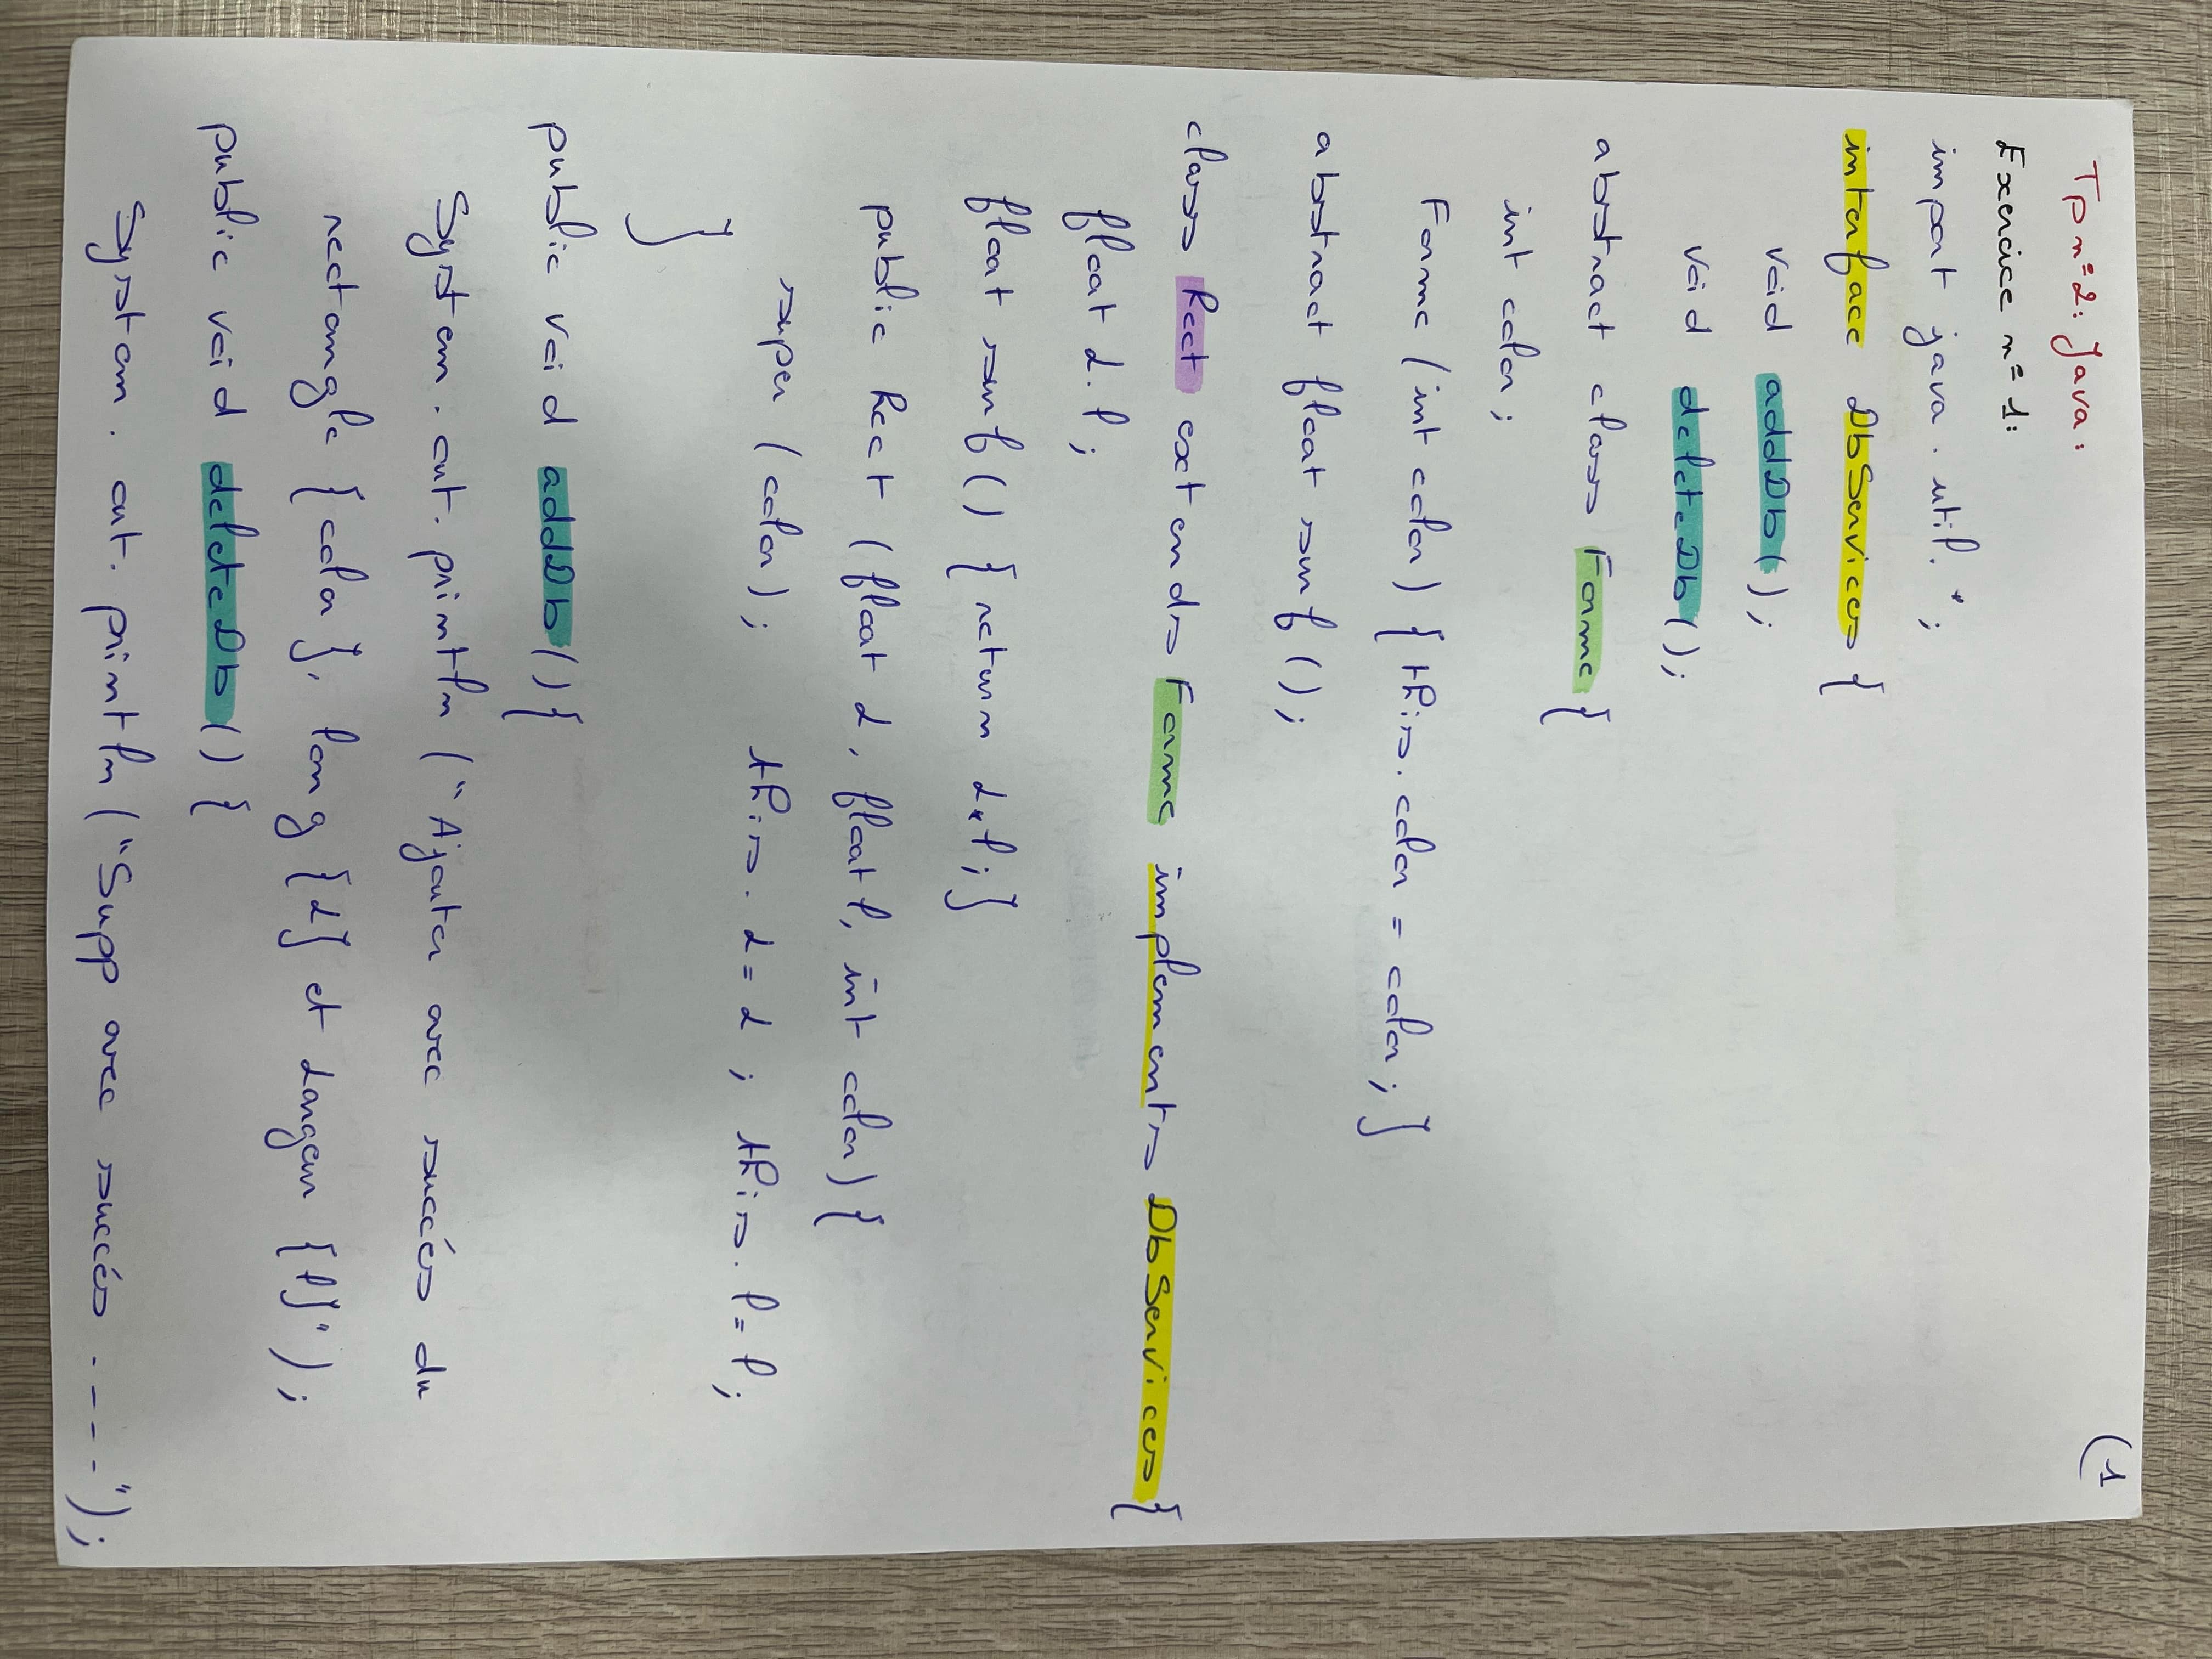 (1
Tp n=2: Java:
Exercice n=1:
import java.util.*;
interface DbServices {
void addDb();
void deleteDb();
abstract class Forme {
int color;
Forme (int color) { this.color = color; }
abstract float surf();
class Rect extends Forme implements DbServices {
float L.l;
float surf() { return L*l; }
public Rect (float L, float l, int color) {
super (color); this.L = L; this.l = l;
}
public void addDb() {
System.out.println ("Ajouter avec succés du
rectangle { color }, long { L } et Largeur { l }");
public void deleteDb() {
System.out.println ("Supp avec succés . - - - ");